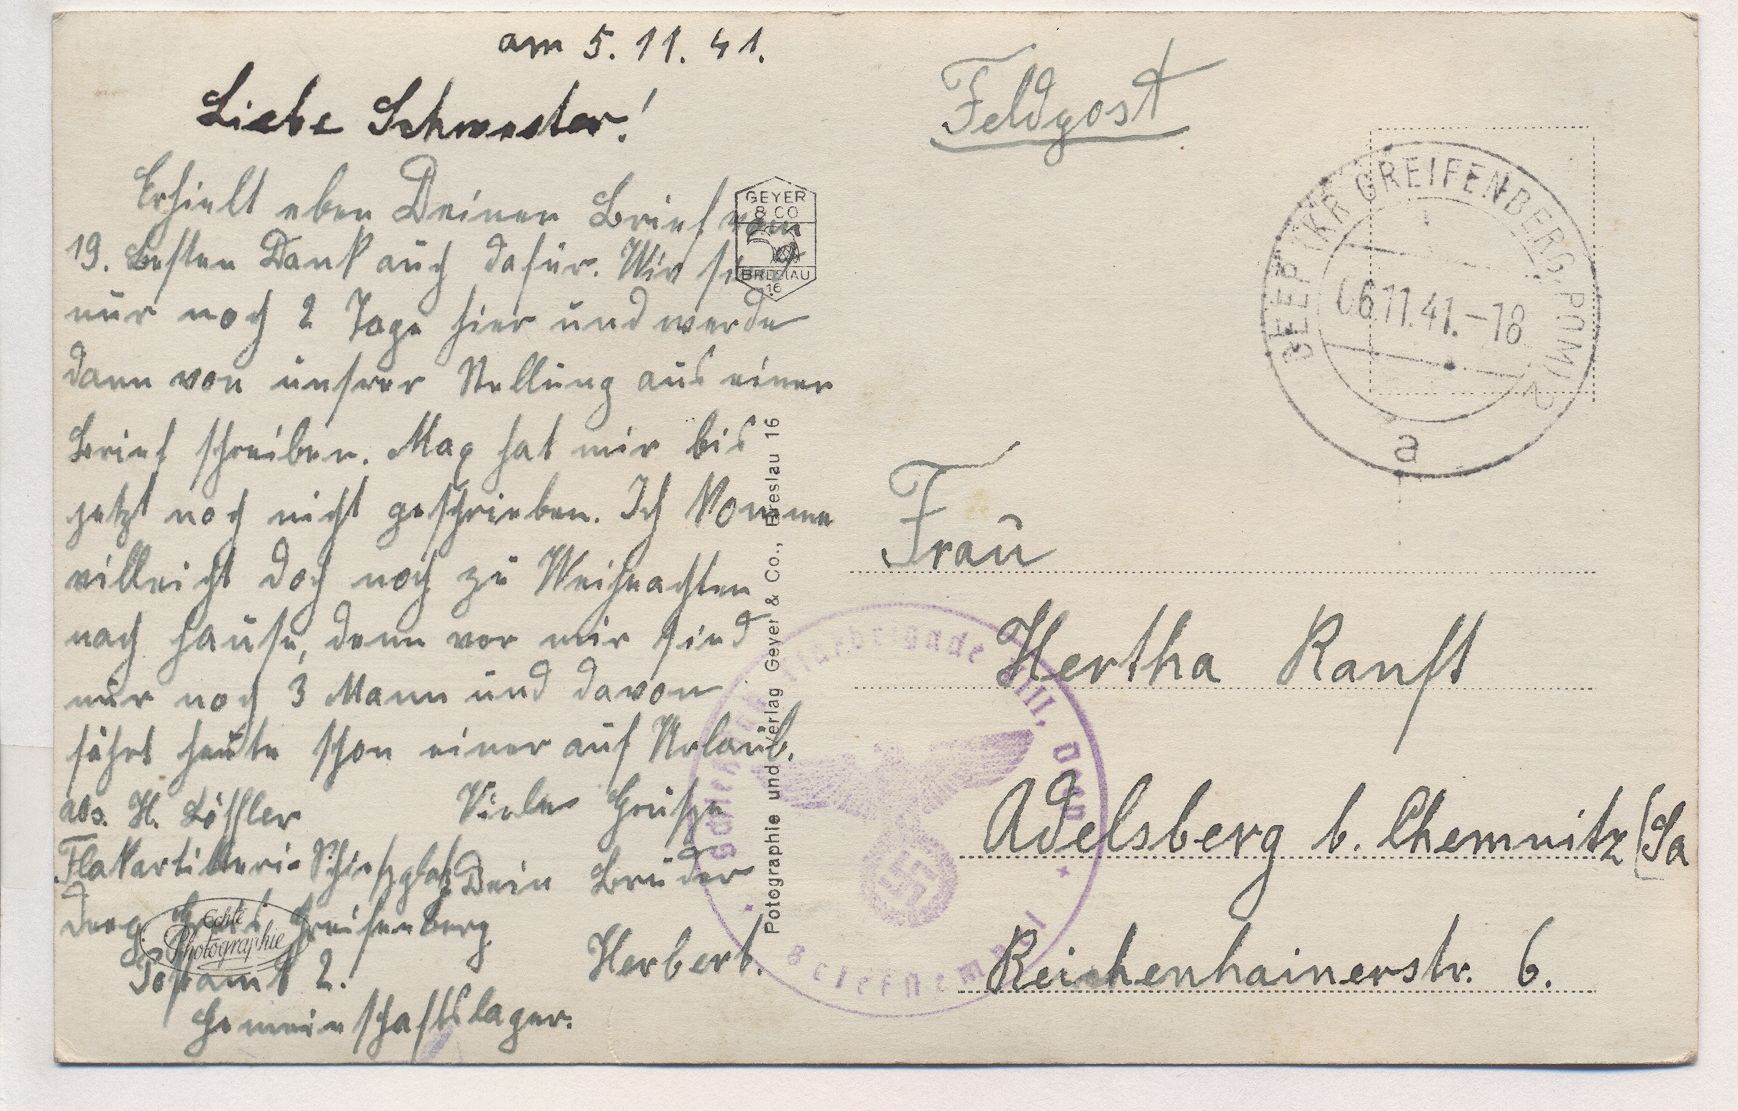 am 5.11.41.
Liebe Schwester!
Erhielt eben Deinen Brief vom
19. besten Dank auch dafür. Wir sind
nur noch 2 Tage hier und werde
dann von unsrer Stellung aus einen
Brief schreiben. Max hat mir bis
jetzt noch nicht geschrieben. Ich komme
villeicht doch noch zu Weihnachten
nach hause, denn vor mir sind
nur noch 3 Mann und davon
fährt heute schon einer auf Urlaub.
Viele Grüße
Dein Bruder
Herbert.
Abs. H. Löffler
Flakartillerie-Schießplatz
Deep Greifenberg
Postamt 2.
Gemeinschaftslager.
Echte
Photographie
GEYER
& CO
BRESLAU
16
Potographie und Verlag Geyer & Co., Breslau 16
Feldpost
DEEP (KR GREIFENBERG, POM) 2
06.11.41.-18
a
Frau
Hertha Ranft
Adelsberg b. Chemnitz (Sa
Reichenhainerstr. 6.
VIII, Deep
Briefstempel